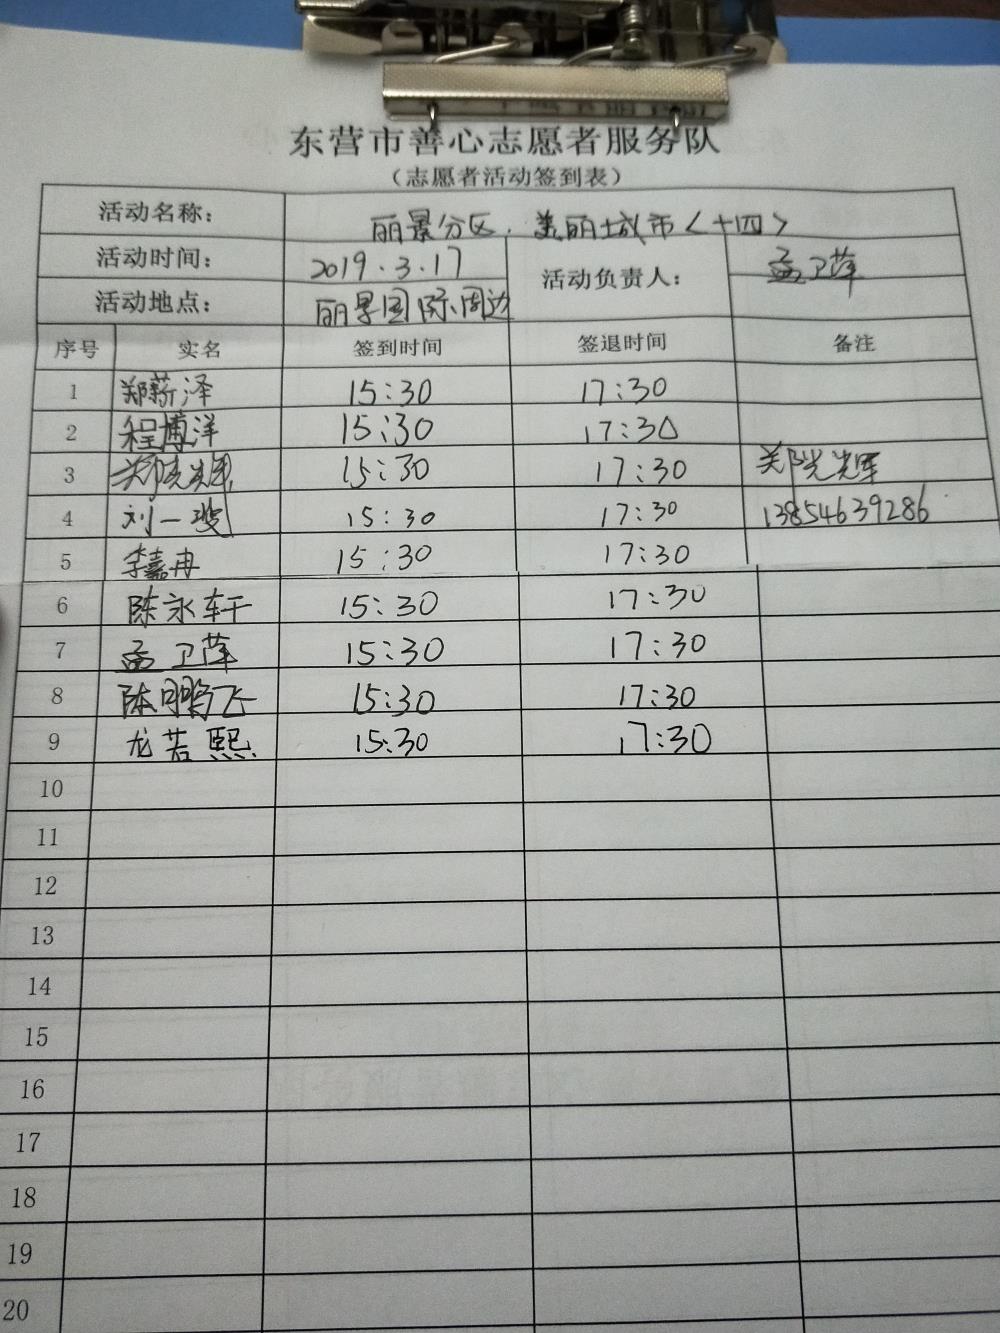 东营市善心志愿者服务队
（志愿者活动签到表）
活动名称： 丽景分区．美丽城市〈十四〉
活动时间： 2019.3.17 活动负责人： 孟卫萍
活动地点： 丽景国际周边
序号 实名 签到时间 签退时间 备注
1 郑薪泽 15:30 17:30
2 程博洋 15:30 17:30
3 郑光辉 15:30 17:30 郑光辉
4 刘一 15:30 17:30 13854639286
5 李嘉冉 15:30 17:30
6 陈永轩 15:30 17:30
7 孟卫萍 15:30 17:30
8 陈鹏飞 15:30 17:30
9 龙若熙 15:30 17:30
10
11
12
13
14
15
16
17
18
19
20